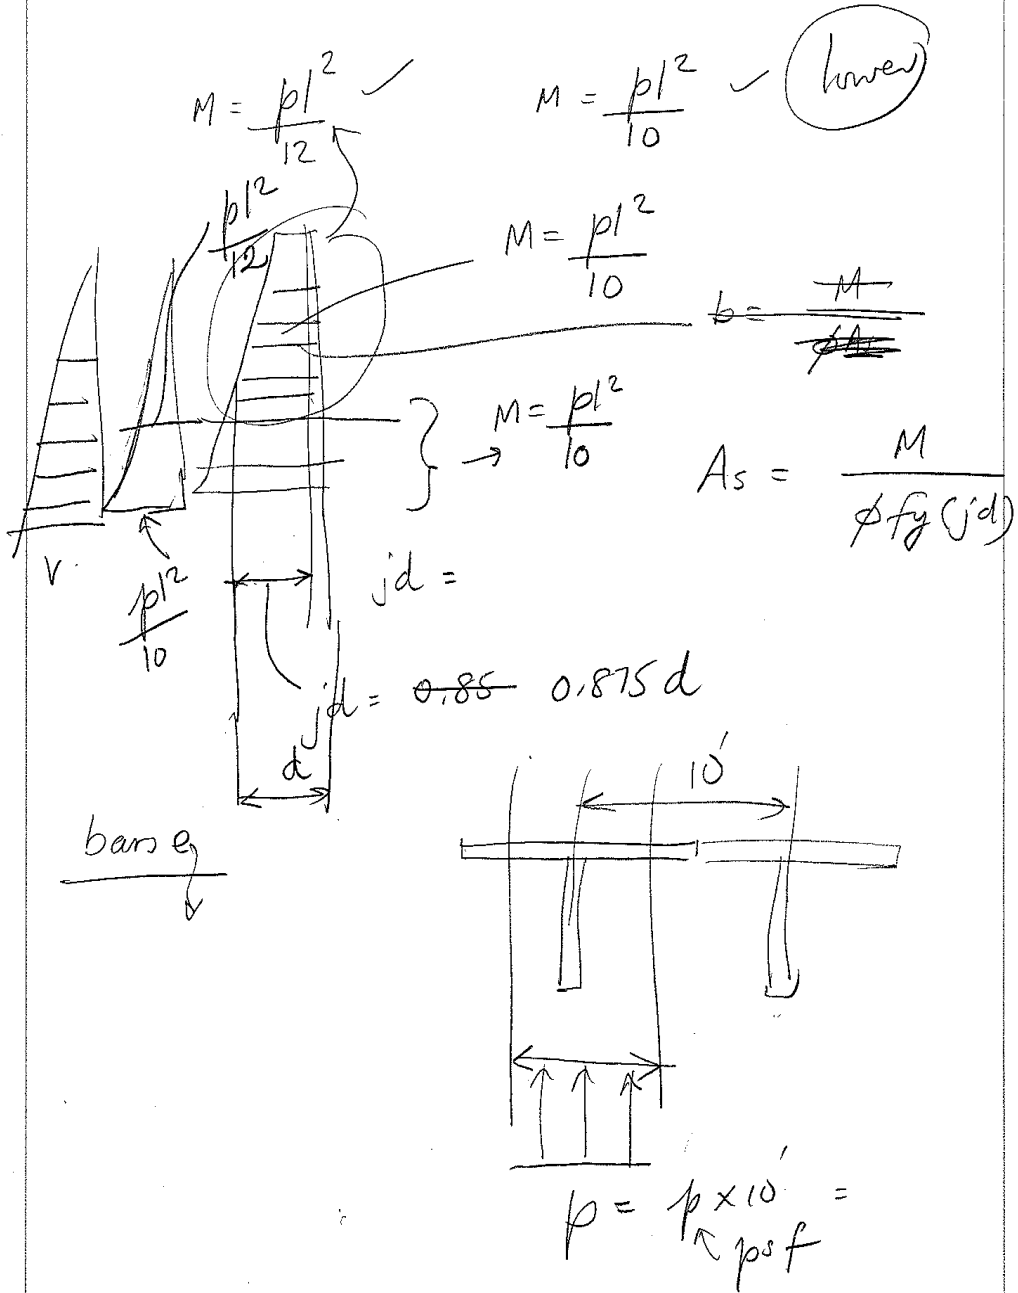 M = pl²/12 ✓
M = pl²/10 ✓
lower
pl²/12
M = pl²/10
b = M/φA
M = pl²/10
→ M = pl²/10
As = M/φfy(jd)
V.
pl²/10
jd =
jd = 0.85 0.875d
d
10'
bars e
p = p x 10' =
psf